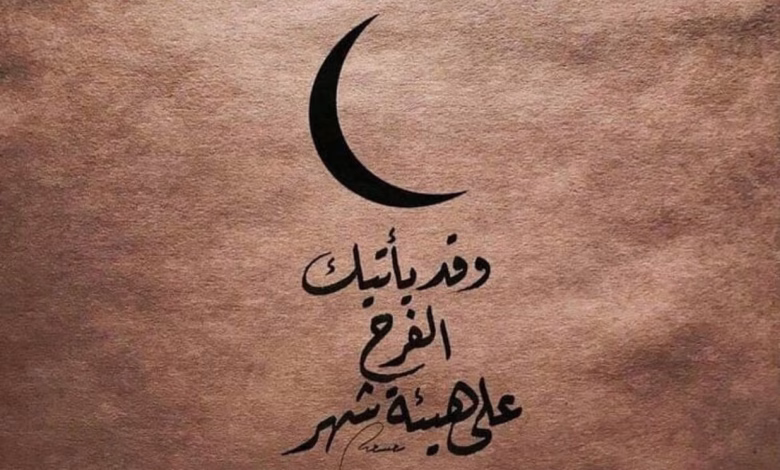 وقد يأتيك
الفرح
على هيئة شهر